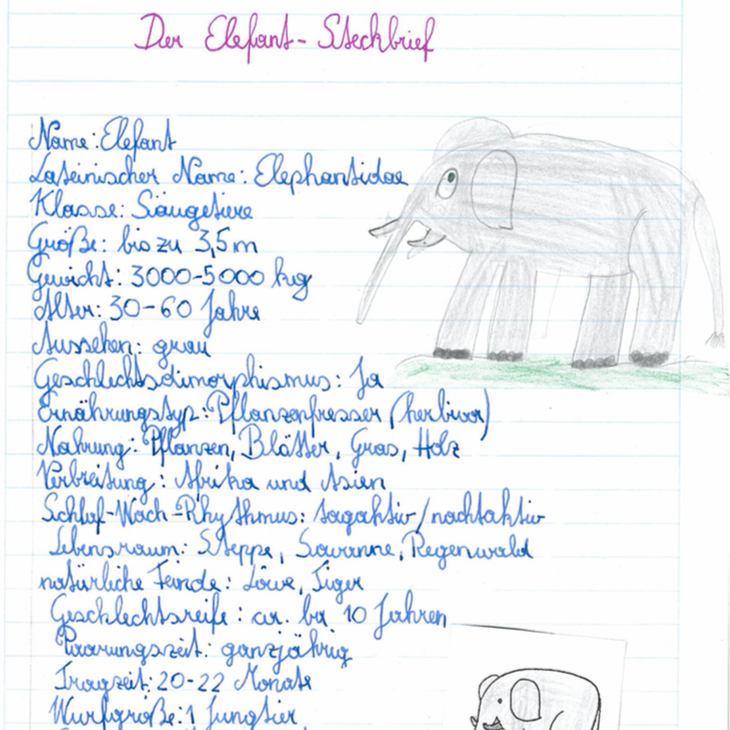 Der Elefant - Steckbrief
Name: Elefant
Lateinischer Name: Elephantidae
Klasse: Säugetiere
Größe: bis zu 3,5 m
Gewicht: 3000-5000 kg
Alter: 30-60 Jahre
Aussehen: grau
Geschlechtsdimorphismus: Ja
Ernährungstyp: Pflanzenfresser (herbivor)
Nahrung: Pflanzen, Blätter, Gras, Holz
Verbreitung: Afrika und Asien
Schlaf-Wach-Rhythmus: tagaktiv/nachtaktiv
Lebensraum: Steppe, Savanne, Regenwald
natürliche Feinde: Löwe, Tiger
Geschlechtsreife: 10 Jahren
Paarungszeit: ganzjährig
Tragzeit: 20-22 Monate
Wurfgröße: 1 Jungtier